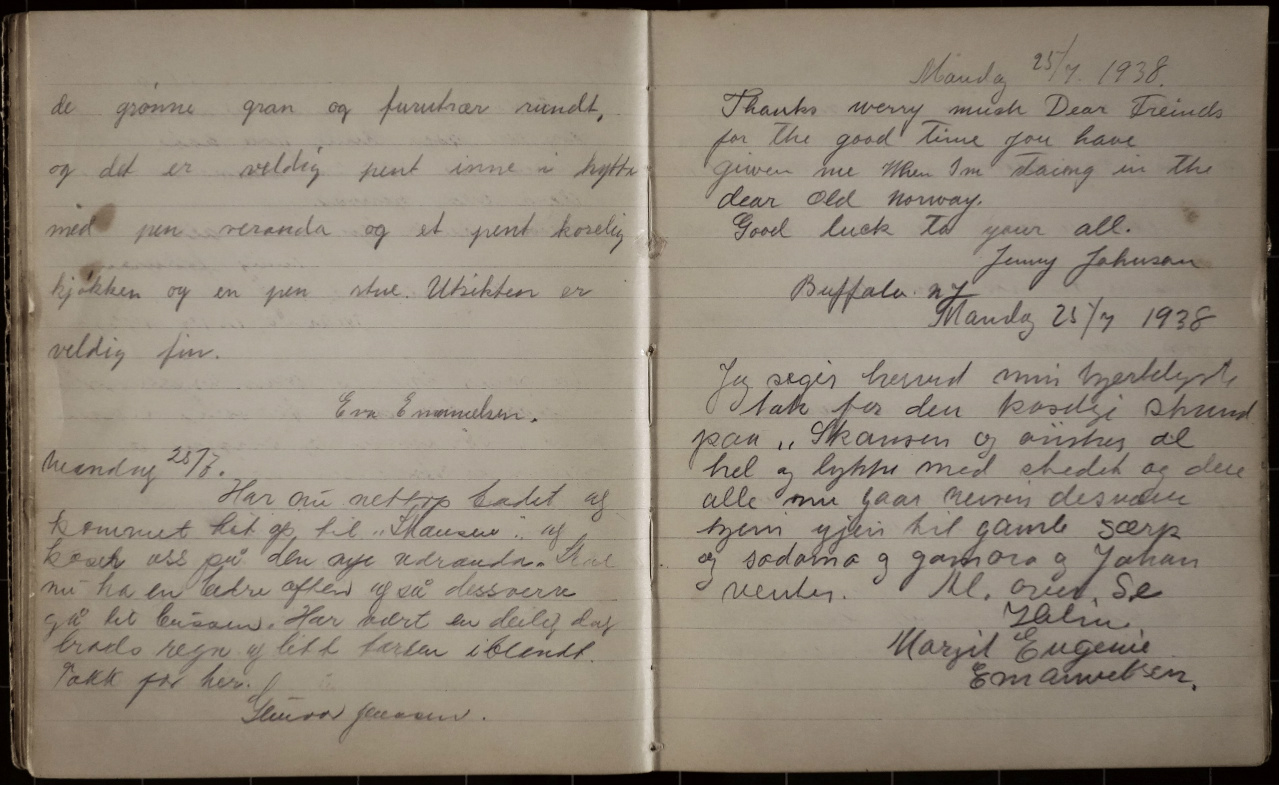 de grønne gran og furutrær rundt,
og det er veldig pent inne i hytte
med pen veranda og et pent koselig
kjøkken og en pen stue. Utsikten er
veldig fin.
Eva Emanuelsen.
Mandag 25/7.
Har nu nettop badet og
kommet hit op til „Skansen" og
koset oss på den nye veranda. Skal
nu ha en bedre aften og så dessverre
gå til bussen. Har vært en deilig dag
trods regn og litt torden iblandt.
Takk for her.
Jenssen.
Mandag 25/7. 1938.
Thanks werry mush Dear Freinds
for the good time you have
given me When I'm staing in the
dear old norway.
Good luck to your all.
Jenny Johnson
Buffalo. ny
Mandag 25/7 1938
Jeg siger herved min hjerteligste
tak for den koselige stund
paa „Skansen og ønsker al
hel og lykke med stedet og dere
alle nu gaar reisen desværre
hjem igjen til gamle Sarp
og sodoma g gomora g Johan
venter. Kl. over. Se
Hilsen
Margit Eugenie
Emanuelsen.